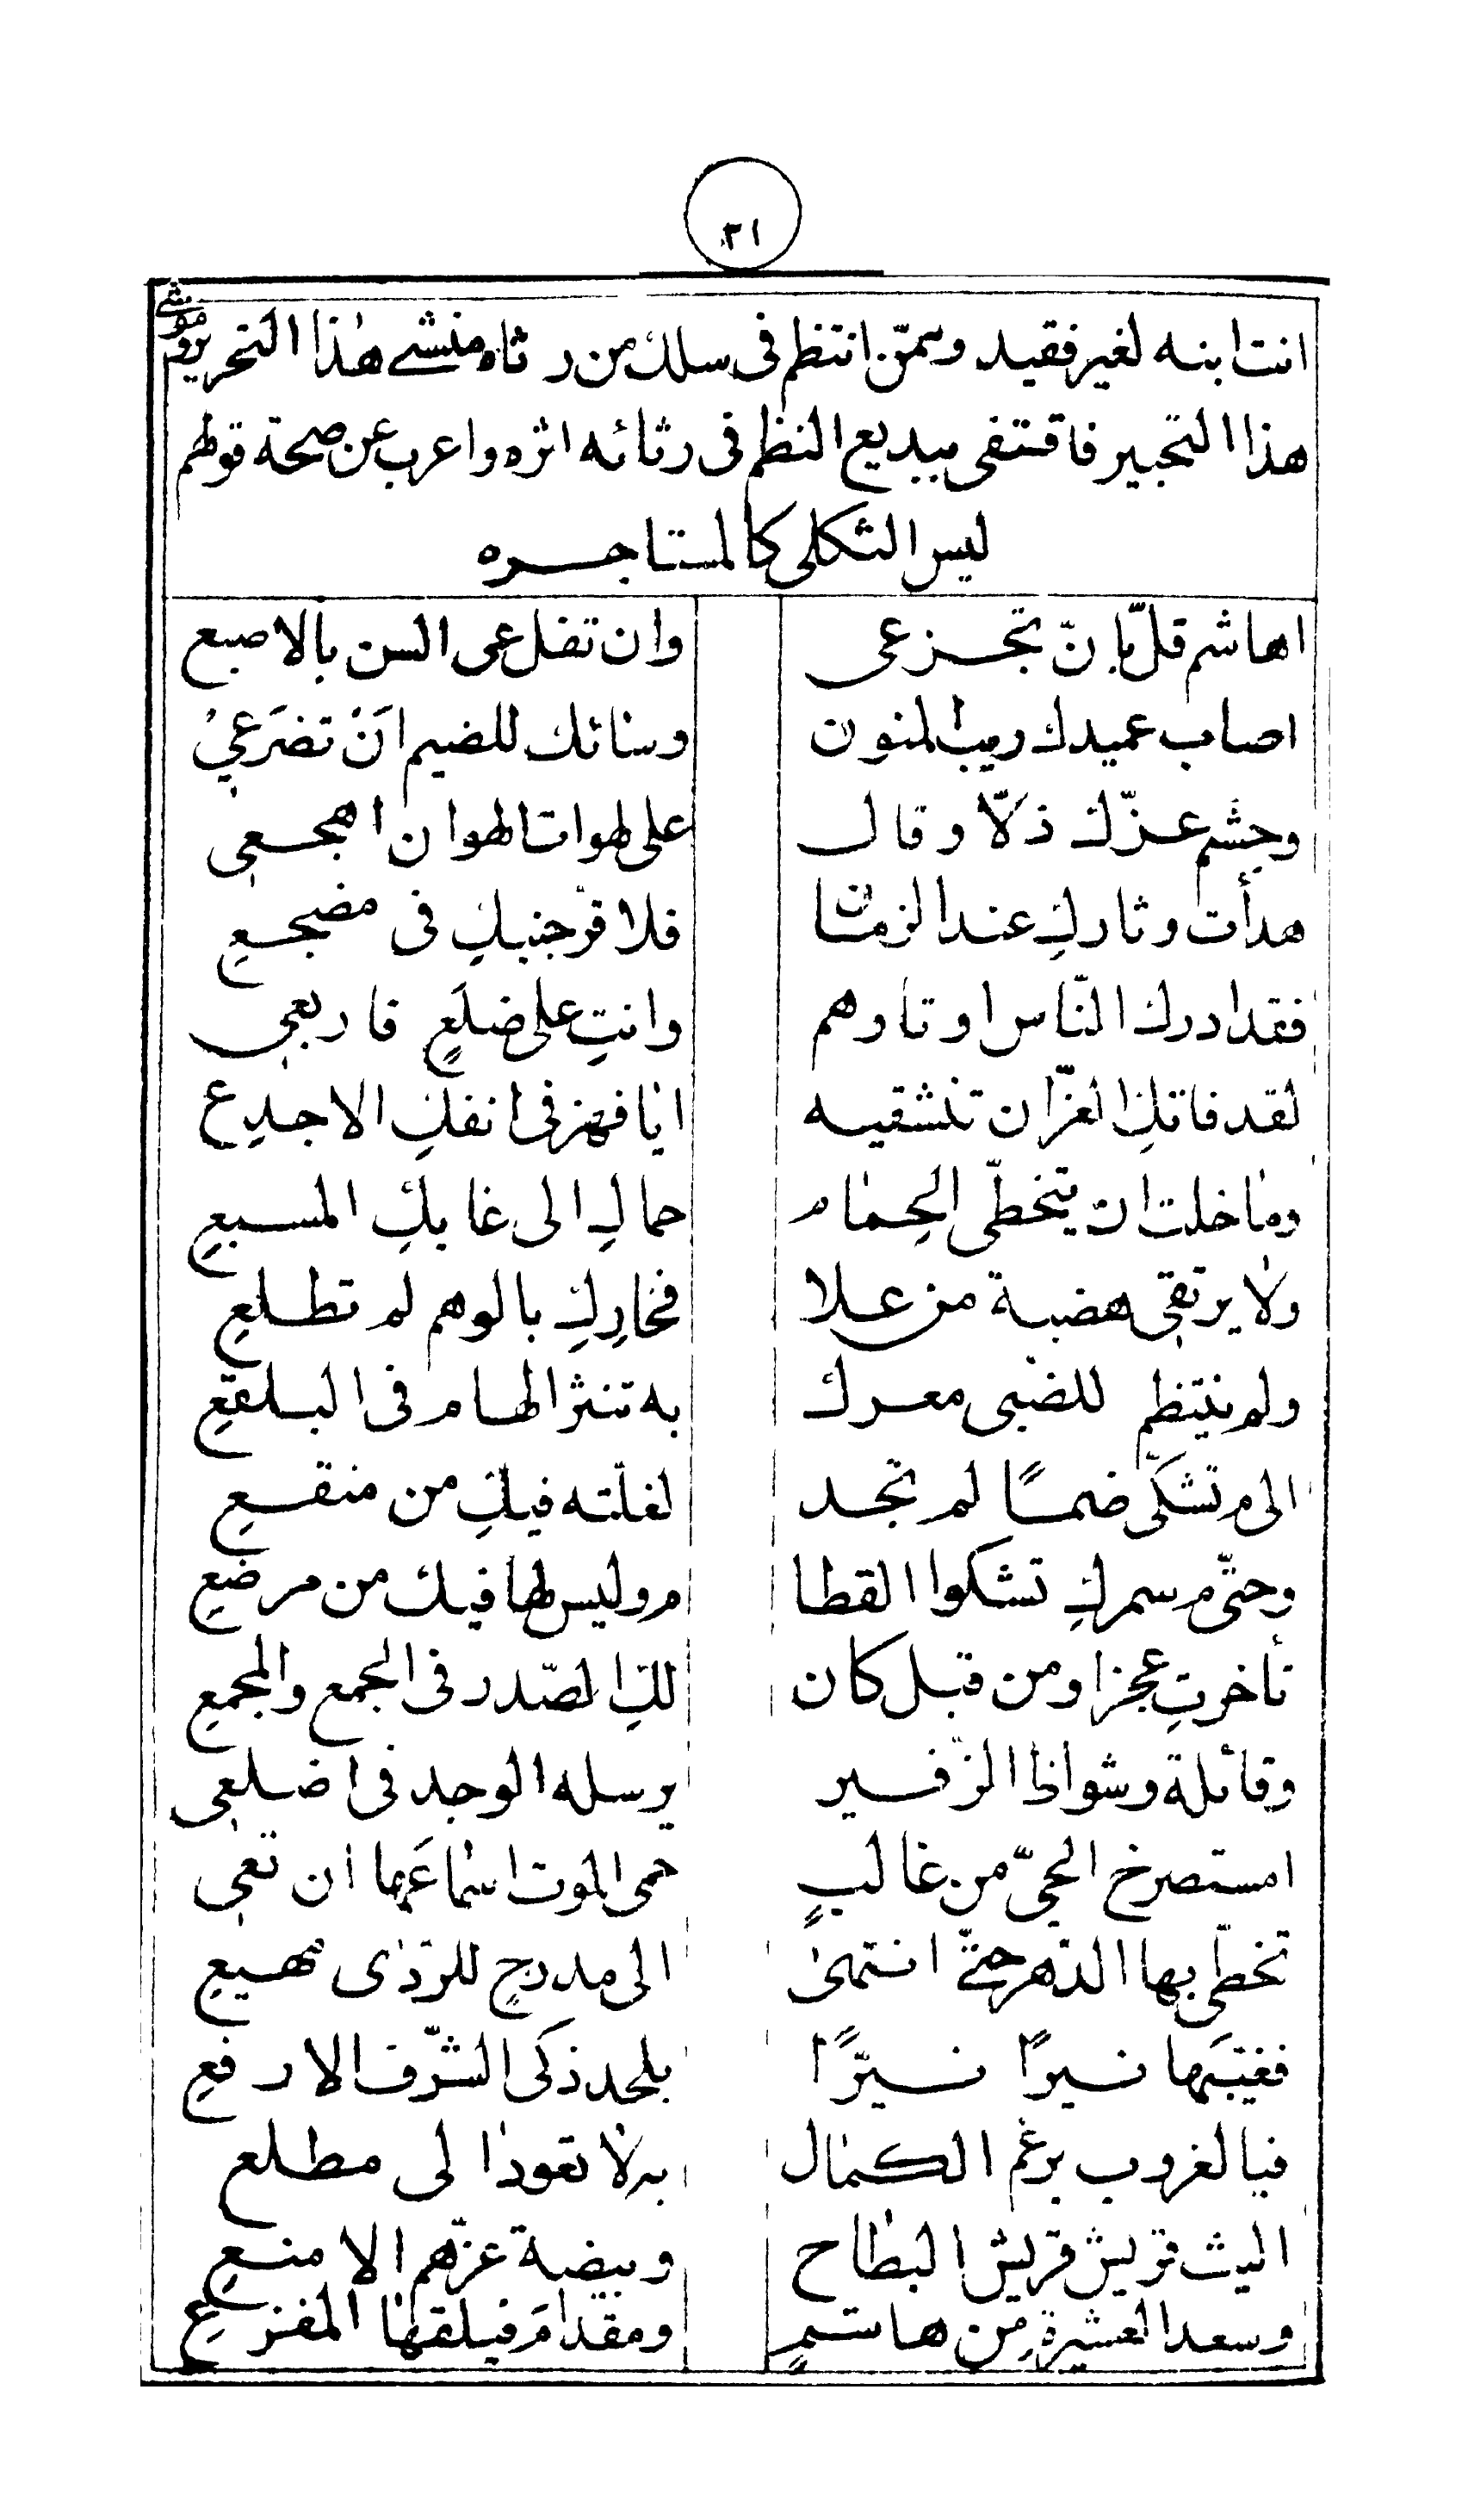 ٣١
انت ابنه لغير فقيد وممّن انتظم فى سلك من رثاه منشى هذا التحرير وموشى
هذا التحبير فاقتفى ببديع النظم فى رثائه اثره واعرب عن صحة قولهم
ليس الثكلى كالمستاجره
اهاشم قلّ بان تجزعى وان تفلعى السن بالاصبع
اصاب عميدك ريب المنون وسائك للضيم انْ تضرَعىْ
وجشم عزّك ذلّا وقال على لهوات الهوان اهجعى
هدأت وثاركِ عند الزمان فلا قرّ جنبكِ فى مضجعِ
فقد ادرك النّاس اوتارهم وانتِ على ضلَعٍ فاربعى
لقد فاتكِ العزّ ان تنشقيه ايا فهر فى انفكِ الاجدعِ
وما خلت ان يتخطّى الحِمام حماكِ الى غابكِ المسبعِ
ولا يرتقى هضبة من علا فخاركِ بالوهم لم تطلعِ
ولم ينتظم للضبى معرك به تنثر الهام فى البلقعِ
الى م تشكّى ضمًا لم تجد لغلته فيكِ من منقعِ
وحتّى م سمركِ تشكوا الفطا م وليس لها فيك من مرضعِ
تأخرتِ عجزا ومن قبل كان لكِ الصّدر فى الجمع والمجمعِ
وقائلة وشواظ الزّفير يرسله الوجد فى اضلعى
امستصرخ الحىّ من غالبٍ حمى الموت اسماعَها ان تعى
تخطّى بها الدّهر حتّى انتمى الى مدرجٍ للرّدى مهيعِ
فغيّبها نيرًا نيّرًا بلحد ذكى الشّرف الارفعِ
فيا لغروب برغم الكمال به لا تعود الى مطلع
اليث قريش قريش البطاح وبيضة عزّهم الامنعِ
وسعد العشيرة من هاشمٍ ومقدامَ فيلقها المفزعِ